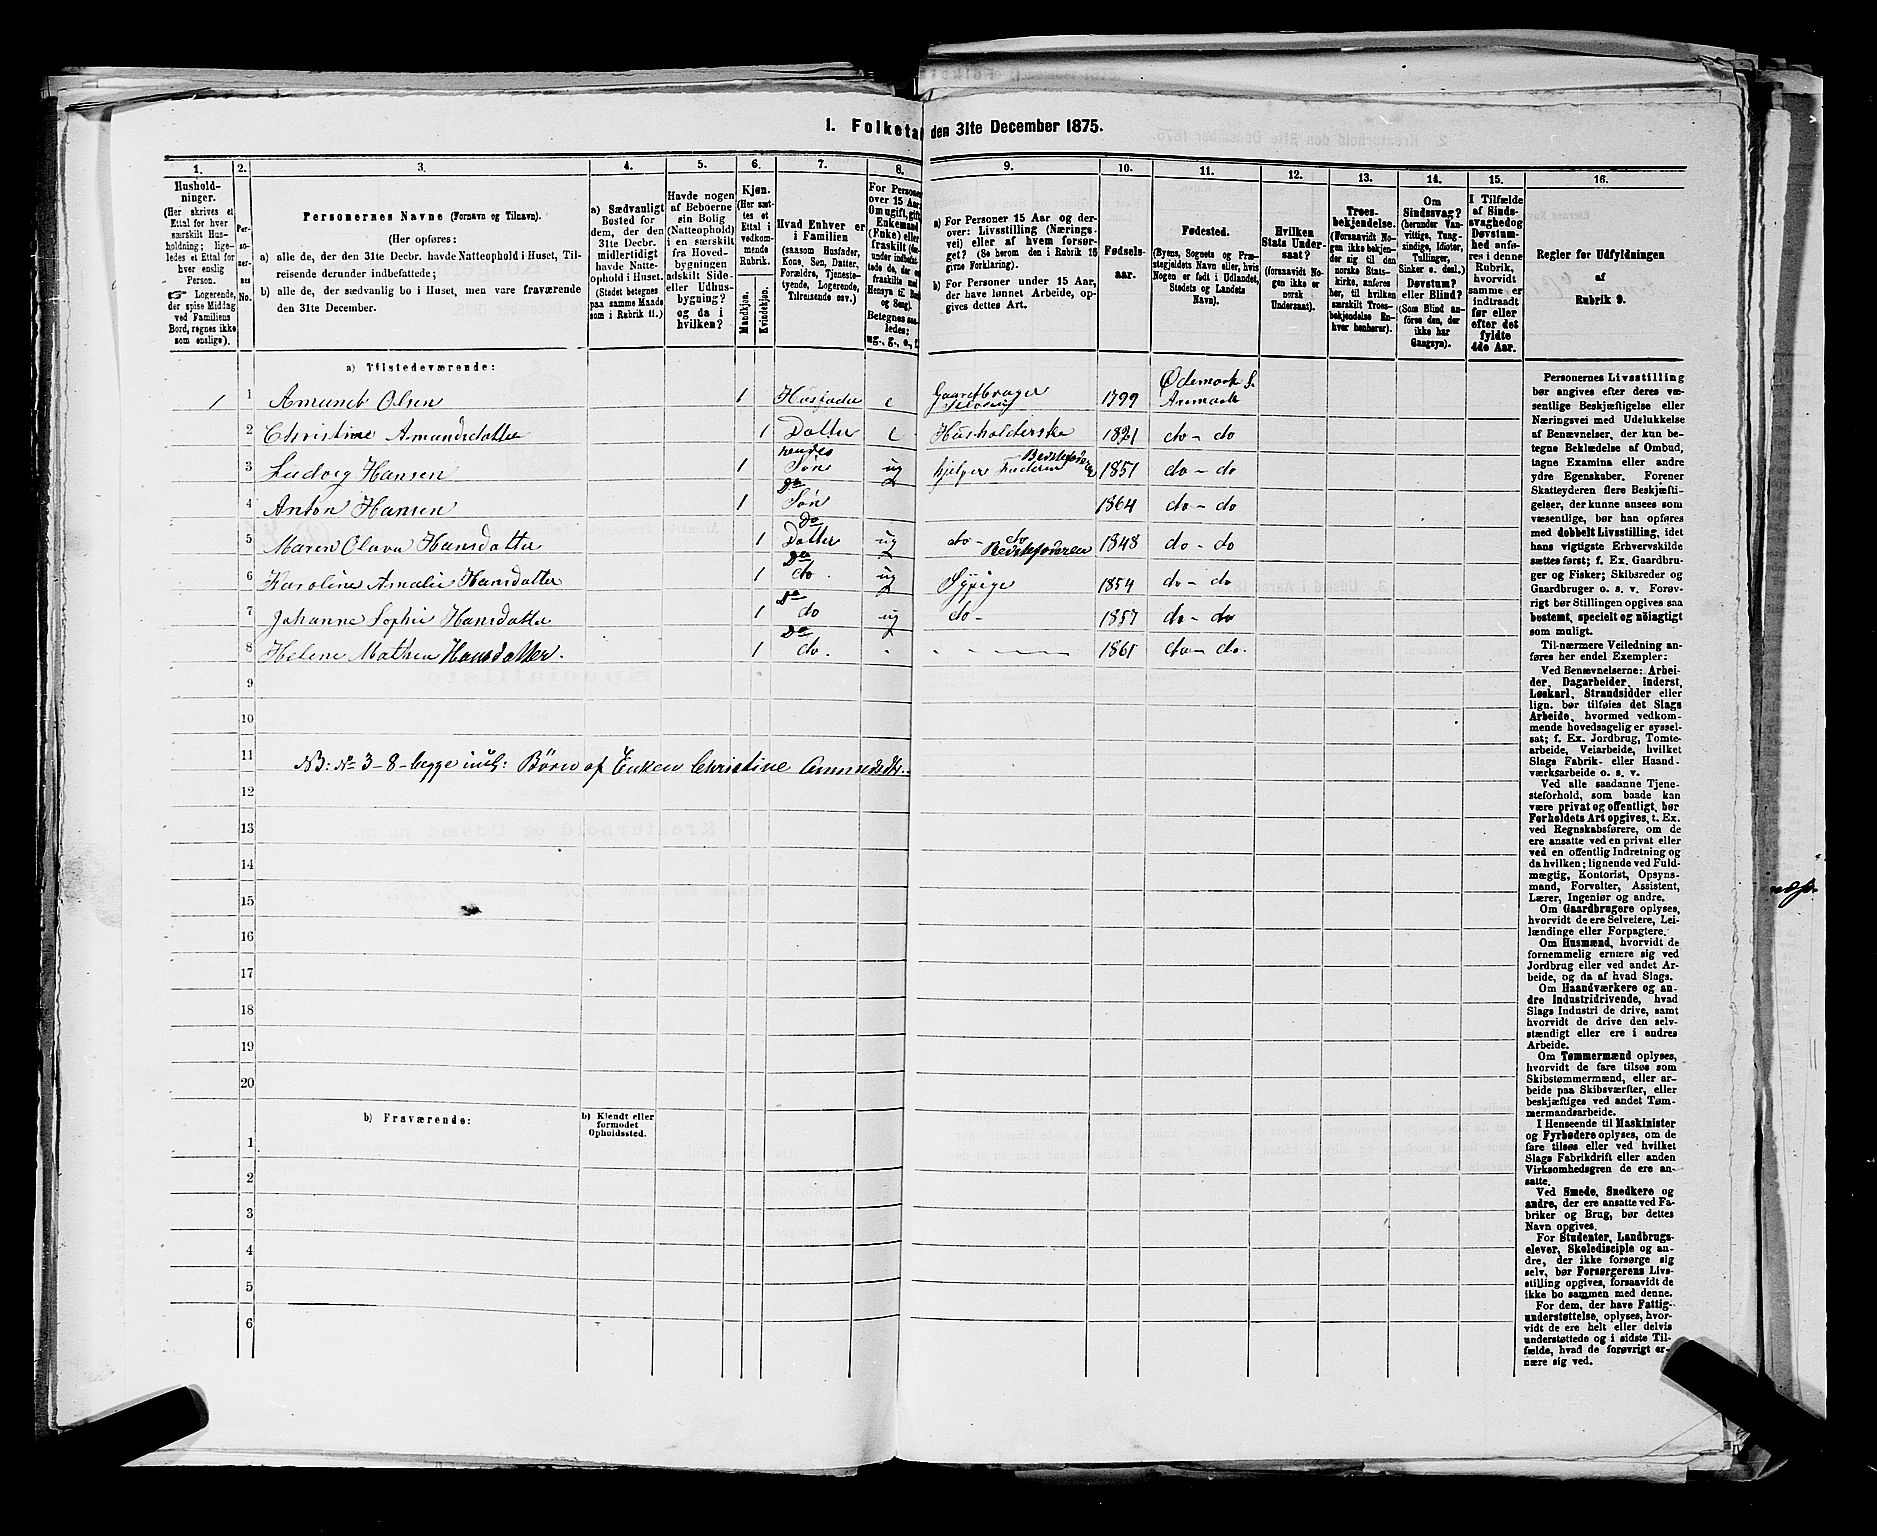 1. Folketal den 31te December 1875.
1.
2.
3.
4.
5.
6.
7.
8.
9.
10.
11.
12.
13.
14.
15.
16.
Hushold-
ninger.
(Her skrives et
Ettal for hver
særskilt Hus-
holdning; lige-
ledes et Ettal for
hver enslig
Person.
☞ Logerende,
der spise Middag
ved Familiens
Bord, regnes ikke
som enslige).
Per-
so-
ner-
nes
No.
Personernes Navne (Fornavn og Tilnavn).
(Her opføres:
a) alle de, der den 31te Decbr. havde Natteophold i Huset, Til-
reisende derunder indbefattede;
b) alle de, der sædvanlig bo i Huset, men vare fraværende
den 31te December.
a) Sædvanligt
Bosted for
dem, der den
31te Decbr.
midlertidigt
havde Natte-
ophold i Huset.
(Stedet betegnes
paa samme Maade
som i Rubrik 11.)
Havde nogen
af Beboerne
sin Bolig
(Natteophold)
i en særskilt
fra Hoved-
bygningen
adskilt Side-
eller Udhus-
bygning?
og da i
hvilken?
Kjøn.
(Her sæt-
tes et
Ettal i
vedkom-
mende
Rubrik.
Mandkjøn.
Kvindekjøn.
Hvad Enhver er
i Familien
(saasom Husfader,
Kone, Søn, Datter,
Forældre, Tjeneste-
tyende, Logerende,
Tilreisende osv.)
For Personer
over 15 Aar:
Om ugift, gift,
Enkemand
(Enke) eller
fraskilt
Betegnes saa-
ledes:
ug., g., e., f.
a) For Personer 15 Aar og der-
over: Livsstilling (Nærings-
vei) eller af hvem forsør-
get? (Se herom den i Rubrik 16
givne Forklaring).
b) For Personer under 15 Aar,
der have lønnet Arbeide, op-
gives dettes Art.
Fødsels-
aar.
Fødested.
(Byens, Sognets og Præ-
stegjeldets Navn eller, hvis
Nogen er født i Udlandet,
Stedets og Landets
Navn).
Hvilken
Stats Under-
saat?
(forsaavidt No-
gen ikke er
norsk
Undersaat).
Troes-
bekjendelse.
(Forsaavidt No-
gen ikke bekjen-
der sig til den
norske Stats-
kirke, anføres
her, til hvilken
særskilt Troes-
bekjendelse En-
hver henhører).
Om
Sindssvag?
(herunder Van-
vittige, Tung-
sindige, Idioter,
Tullinger,
Sinker o. desl.)
Døvstum?
eller Blind?
(Som Blind an-
føres den, der
ikke har
Gangsyn).
I Tilfælde
af Sinds-
svaghed og
Døvstum-
hed anfø-
res i denne
Rubrik,
hvorvidt
samme er
indtraadt
før eller
efter det
fyldte
4de Aar.
Regler for Udfyldningen
af
Rubrik 9.
a) Tilstedeværende:
1 1 Amund Olsen 1 Husfader e Gaardbruger Selveier 1799 Ødemark S. Aremark
2 Christine Amundsdatter 1 Datter e Husholderske 1821 do - do
3 Ludvig Hansen 1 hendes Søn ug hjelper Bedstefaderen 1851 do - do
4 Anton Hansen 1 Do Søn 1864 do - do
5 Maren Olava Hansdatter 1 Do Datter ug do - do Bedstefaderen 1848 do - do
6 Karoline Amalie Hansdatter 1 Do do. ug Sypige 1854 do - do
7 Johanne Sophie Hansdatter 1 Do do ug do - 1857 do - do
8 Helene Mathea Hansdatter. 1 Do do. 1861 do - do.
9
10
11 NB: No 3-8 begge incl: Børn af Enken Christine Amundsdt.
12
13
14
15
16
17
18
19
20
b) Fraværende:
b) Kjendt eller
formodet
Opholdssted.
1
2
3
4
5
6
Personernes Livsstilling
bør angives efter deres væ-
sentlige Beskjæftigelse eller
Næringsvei med Udelukkelse
af Benævnelser, der kun be-
tegne Beklædelse af Ombud,
tagne Examina eller andre
ydre Egenskaber. Forener
Skatteyderen flere Beskjæfti-
gelser, der kunne ansees som
væsentlige, bør han opføres
med dobbelt Livsstilling, idet
hans vigtigste Erhvervskilde
sættes først; f. Ex. Gaardbru-
ger og Fisker; Skibsreder og
Gaardbruger o. s. v. Forøv-
rigt bør Stillingen opgives saa
bestemt, specielt og nøiagtigt
som muligt.
Til nærmere Veiledning an-
føres her endel Exempler:
Ved Benævnelserne: Arbei-
der, Dagarbeider, Inderst,
Løskarl, Strandsidder eller
lign. bør tilføies det Slags
Arbeide, hvormed vedkom-
mende hovedsagelig er syssel-
sat; f. Ex. Jordbrug, Tomte-
arbeide, Veiarbeide, hvilket
Slags Fabrik- eller Haand-
værksarbeide o. s. v.
Ved alle saadanne Tjene-
steforhold, som baade kan
være privat og offentligt, bør
Forholdets Art opgives, t. Ex.
ved Regnskabsførere, om de
ere ansatte ved en privat eller
ved en offentlig Indretning og
da hvilken; lignende ved Fuld-
mægtig, Kontorist, Opsyns-
mand, Forvalter, Assistent,
Lærer, Ingeniør og andre.
Om Gaardbrugere oplyses,
hvorvidt de ere Selveiere, Lei-
lændinge eller Forpagtere.
Om Husmænd, hvorvidt de
fornemmelig ernære sig ved
Jordbrug eller ved andet Ar-
beide, og da af hvad Slags.
Om Haandværkere og an-
dre Industridrivende, hvad
Slags Industri de drive, samt
hvorvidt de drive den selv-
stændigt eller ere i andres
Arbeide.
Om Tømmermænd oplyses,
hvorvidt de fare tilsøs som
Skibstømmermænd, eller ar-
beide paa Skibsværfter, eller
beskjæftiges ved andet Tøm-
mermandsarbeide.
I Henseende til Maskinister
og Fyrbødere oplyses, om de
fare tilsøs eller ved hvilket
Slags Fabrikdrift eller anden
Virksomhedsgren de ere an-
satte.
Ved Smede, Snedkere og
andre, der ere ansatte ved Fa-
briker og Brug, bør dettes
Navn opgives.
For Studenter, Landbrugs-
elever, Skoledisciple og an-
dre, der ikke forsørge sig
selv, bør Forsørgerens Livs-
stilling opgives, forsaavidt de
ikke bo sammen med denne.
For dem, der have Fattig-
understøttelse, oplyses, hvor-
vidt de ere helt eller delvis
understøttede og i sidste Til-
fælde, hvad de forøvrigt er-
nære sig ved.